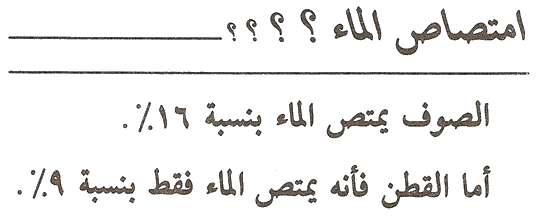 امتصاص الماء ؟ ؟ ؟ ؟
الصوف يمتص الماء بنسبة ١٦٪.
أما القطن فأنه يمتص الماء فقط بنسبة ٩٪.